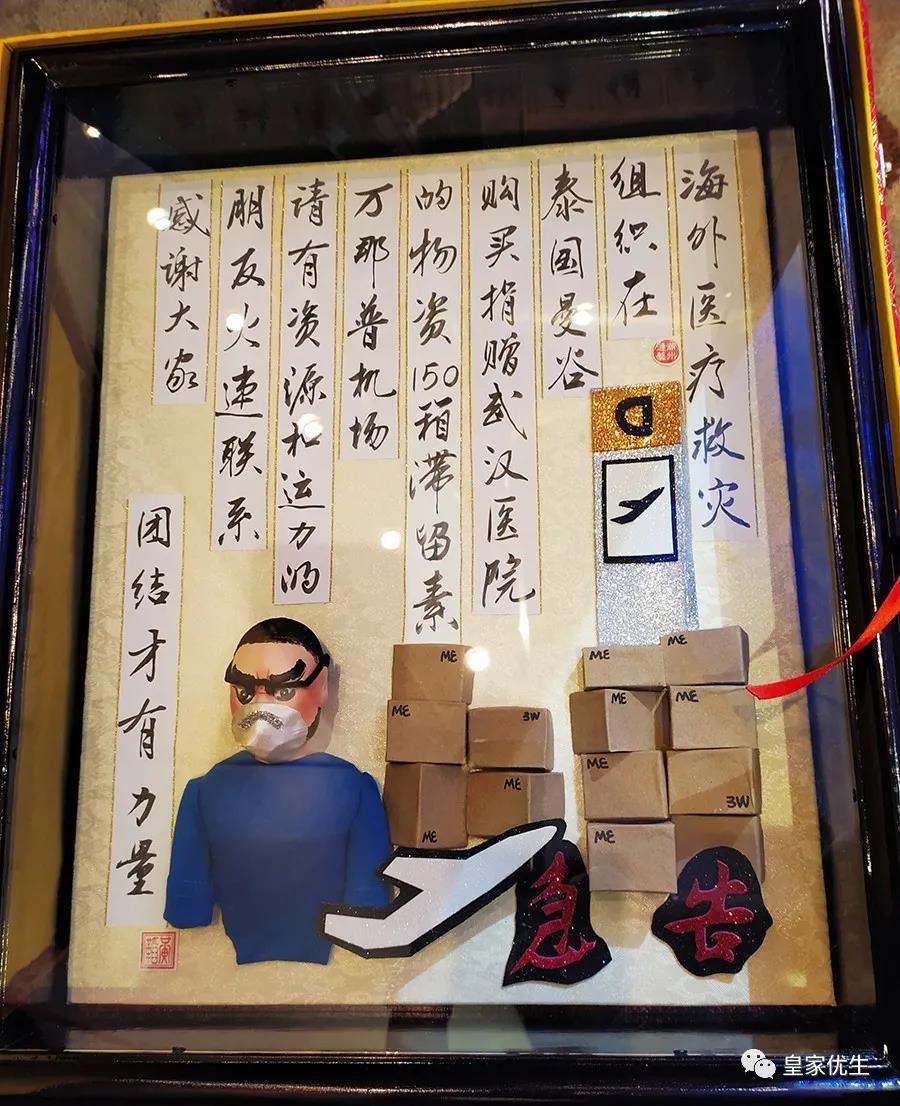 海外医疗救灾
组织在
泰国曼谷
购买捐赠武汉医院
的物资150箱滞留素
万那普机场
请有资源和运力的
朋友火速联系
感谢大家
团结才有力量
D
ME
ME
ME
3W
ME
ME
ME
ME
ME
ME
ME
3W
ME
急告
皇家优生